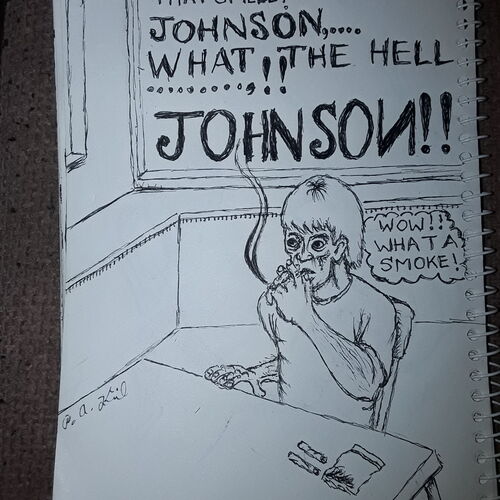 THAT SMELL?
JOHNSON,....
WHAT, THE HELL
.........,!!
JOHNSON!!
WOW!!
WHAT A
SMOKE!
P. A.